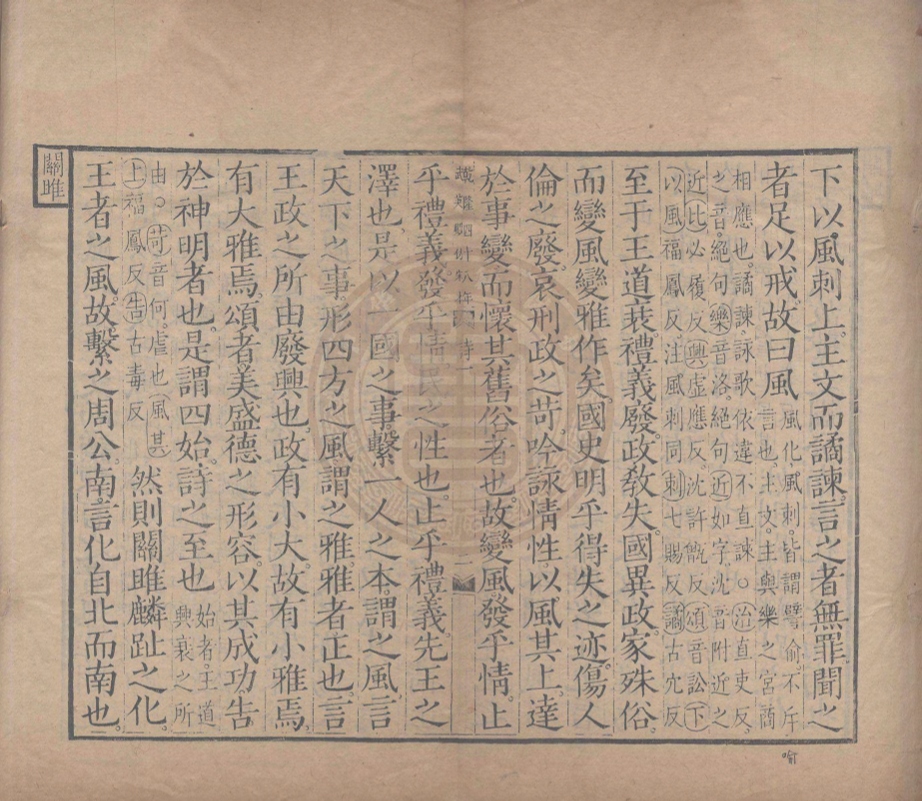 下以風刺上主文而譎諫言之者無罪聞之
者足以戒故曰風
風化風刺皆謂譬喻不斥
言也主文主與樂之宮商
相應也譎諫詠歌依違不直諫○治直吏反
之音絕句樂音洛絕句近如字沈音附近之
近比必履反興虛應反沈許甑反頌音訟下
以風福鳳反注風刺同刺七賜反譎古穴反
至于王道衰禮義廢政教失國異政家殊俗
而變風變雅作矣國史明乎得失之迹傷人
倫之廢哀刑政之苛吟詠情性以風其上達
於事變而懷其舊俗者也故變風發乎情止
詩一
二
乎禮義發乎情民之性也止乎禮義先王之
澤也是以一國之事繫一人之本謂之風言
天下之事形四方之風謂之雅雅者正也言
王政之所由廢興也政有小大故有小雅焉
有大雅焉頌者美盛德之形容以其成功告
於神明者也是謂四始詩之至也
始者王道
興衰之所
由○苛音何虐也風其
上福鳳反告古毒反
然則關雎麟趾之化
王者之風故繫之周公南言化自北而南也
關雎